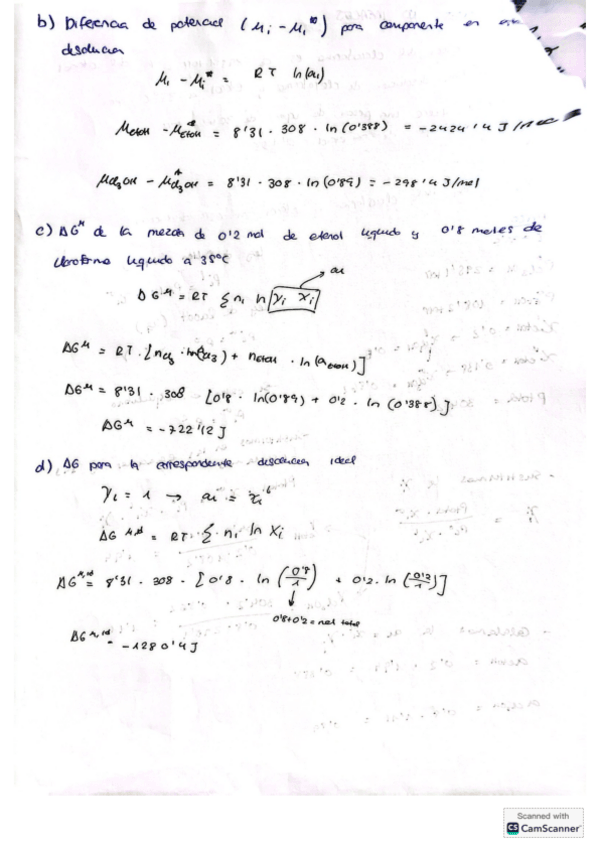 b) Diferencia de potencial (μi - μi*) para componente en
disolución
μi - μi* = RT ln(ai)
μEtOH - μ*EtOH = 8'31 · 308 · ln(0'388) = -2424'4 J/
μCl3OH - μ*Cl3OH = 8'31 · 308 · ln(0'89) = -298'4 J/mol
c) ΔG^M de la mezcla de 0'2 mol de etanol líquido y 0'8 moles de
cloroformo líquido a 35°C
au
ΔG^M = RT Σ ni ln γi xi
ΔG^M = RT · [nCl3 · ln(aCl3) + nEtOH · ln(aEtOH)]
ΔG^M = 8'31 · 308 [0'8 · ln(0'89) + 0'2 · ln(0'388)]
ΔG^M = -722'12 J
d) ΔG para la correspondiente disolución ideal
γi = 1 → ai = xi
ΔG^M,id = RT · Σ · ni ln Xi
ΔG^M,id = 8'31 · 308 · [0'8 · ln(0'8/1) + 0'2 · ln(0'2/1)]
0'8+0'2 = mol total
ΔG^M,id = -1280'4 J
Scanned with
CS CamScanner